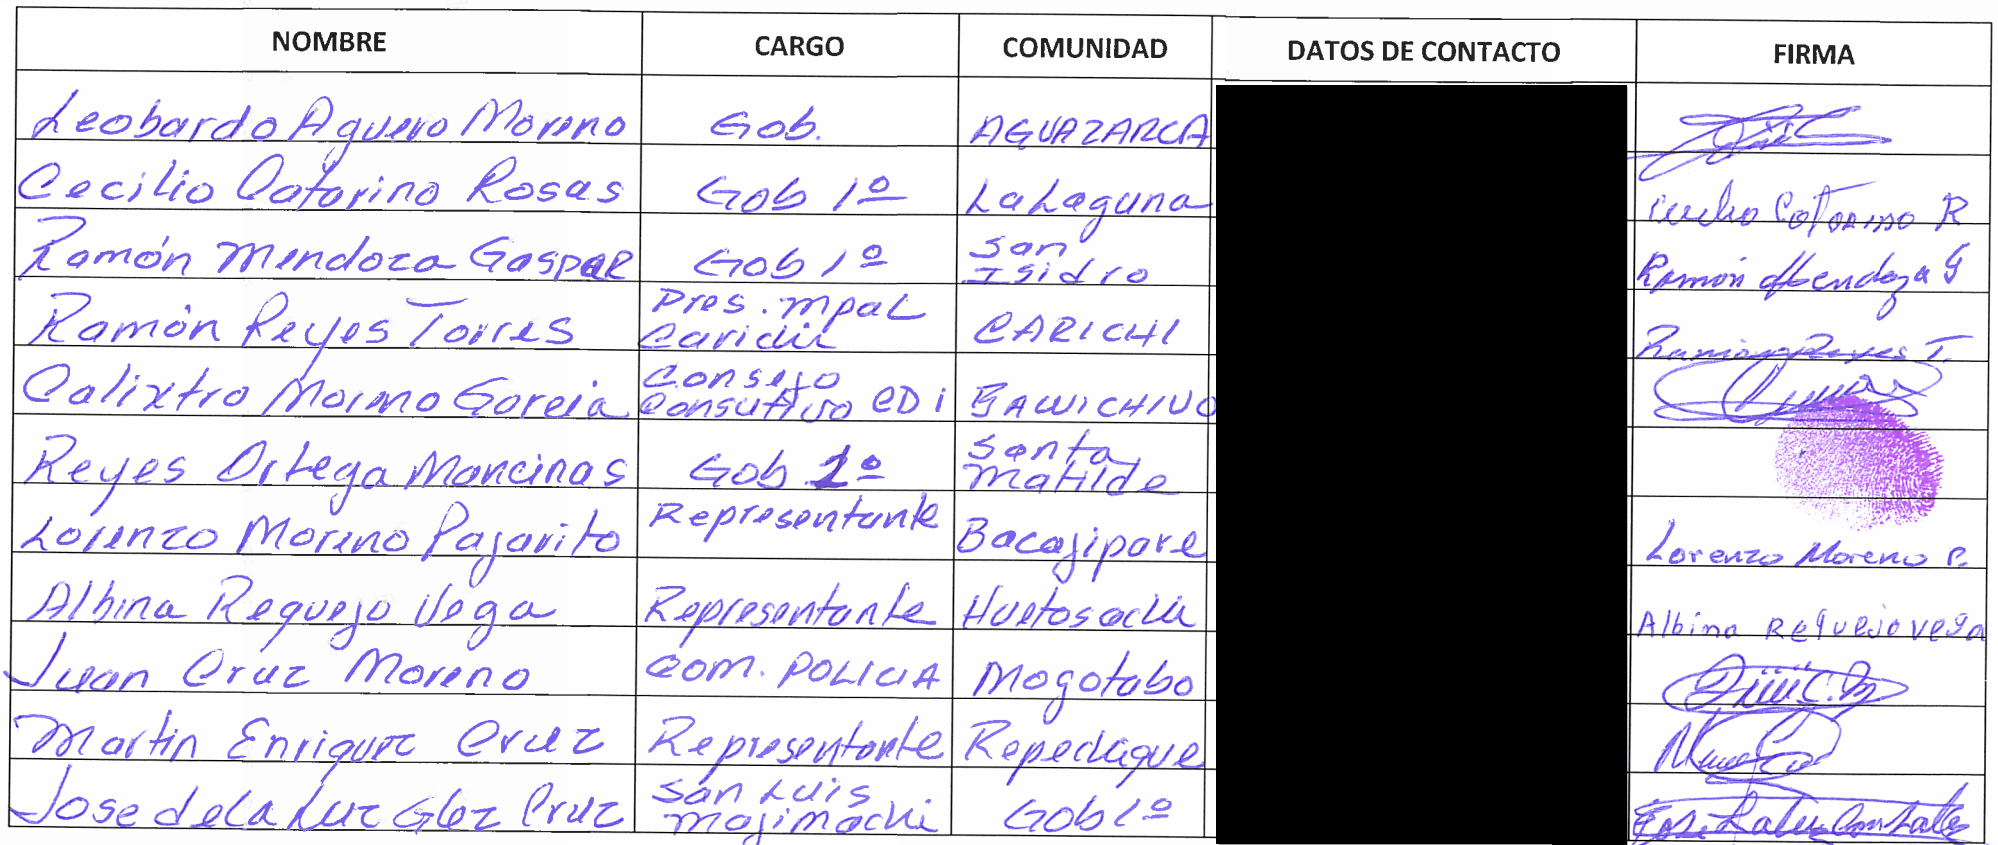 NOMBRE CARGO COMUNIDAD DATOS DE CONTACTO FIRMA
Leobardo Aguero Moreno Gob. AGUAZARCA
Cecilio Catarino Rosas Gob 1º La Laguna Catarino R
Ramón Mendoza Gaspar Gob 1º San Isidro Ramón Mendoza G
Ramón Reyes Torres Pres. Mpal Carichi CARICHI Ramón Reyes T.
Calixtro Moreno Garcia Consejo Consultivo CDI BAWICHIVO
Reyes Ortega Mancinas Gob 1º Santa Matilde
Lorenzo Moreno Pajarito Representante Bacajipare Lorenzo Moreno P.
Albina Requejo Vega Representante Huetosachi Albina Requejo vega
Juan Cruz Moreno Com. POLICIA Mogotabo
Martin Enriquez Cruz Representante Repechique
Jose de La Luz Glez Cruz San Luis Majimachi Gob 1º